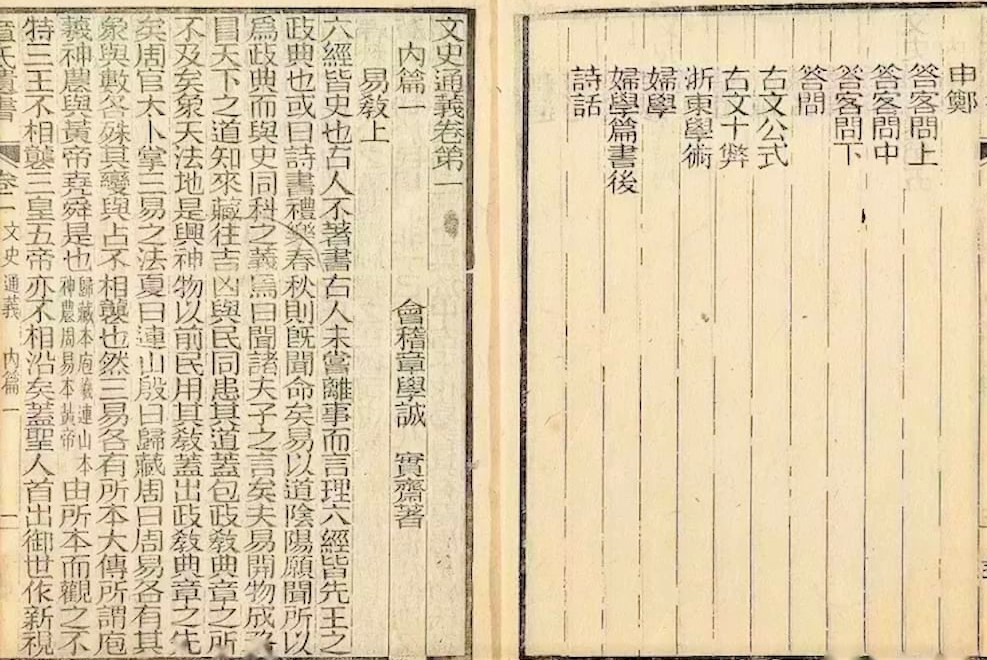 申鄭
答客問上
答客問中
答客問下
答問
古文公式
古文十弊
浙東學術
婦學
婦學篇書後
詩話
文史通義卷第一
內篇一 會稽章學誠 實齋著
易敎上
六經皆史也古人不著書古人未嘗離事而言理六經皆先王之
政典也或曰詩書禮樂春秋則旣聞命矣易以道陰陽願聞所以
爲政典而與史同科之義焉曰聞諸夫子之言矣夫易開物成務
冒天下之道知來藏往吉凶與民同患其道蓋包政敎典章之所
不及矣象天法地是興神物以前民用其敎蓋出政敎典章之先
矣周官太卜掌三易之法夏曰連山殷曰歸藏周曰周易各有其
象與數各殊其變與占不相襲也然三易各有所本大傳所謂庖
羲神農與黃帝堯舜是也歸藏本庖羲連山本神農周易本黃帝由所本而觀之不
特三王不相襲三皇五帝亦不相沿矣蓋聖人首出御世作新視
章氏遺書 卷一 文史通義 內篇一 一